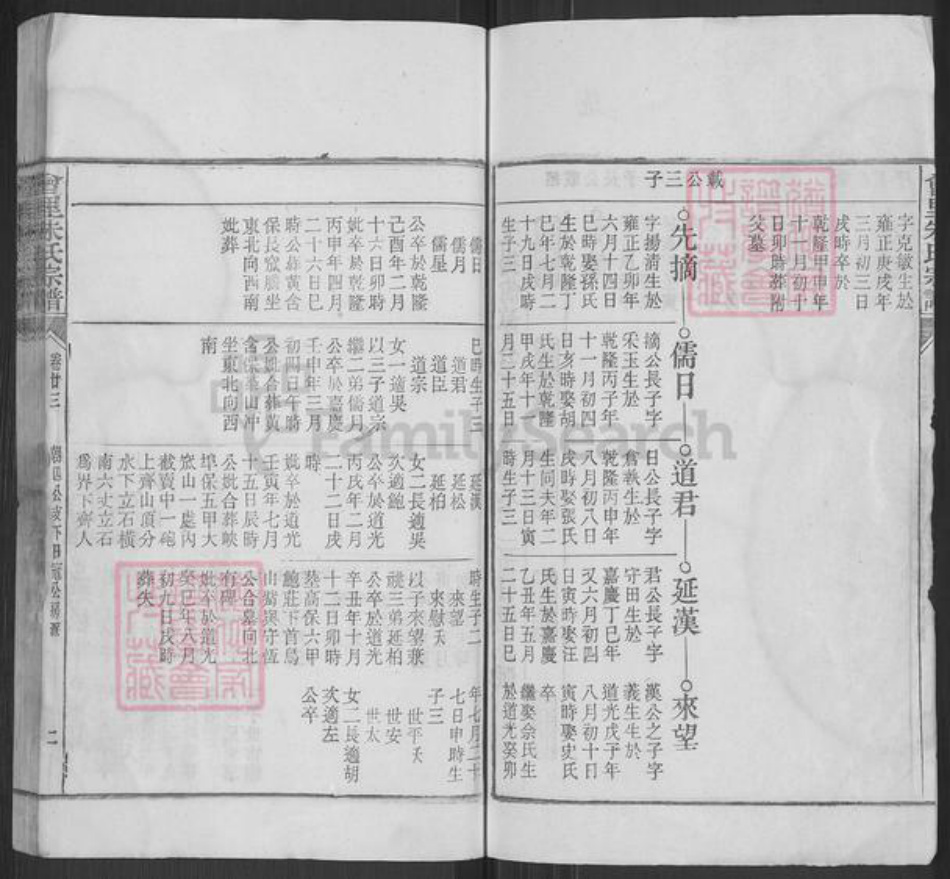 會里朱氏宗譜
字克敏生於
雍正庚戌年
三月初三日
戌時卒於
乾隆甲申年
十一月初十
日卯時葬附
父墓
載公三子
先摛
字揚清生於
雍正乙卯年
六月十四日
巳時娶孫氏
生於乾隆丁
巳年七月二
十九日戌時
生子三
儒日
儒月
儒星
公卒於乾隆
己酉年二月
十六日卯時
妣卒於乾隆
丙甲年四月
二十六日巳
時公葬黃含
保長窊騰坐
東北向西南
妣葬
儒日
摛公長子字
宋玉生於
乾隆丙子年
十一月初四
日亥時娶胡
氏生於乾隆
甲戌年十一
月二十五日
巳時生子三
道君
道臣
道宗
女一適吳
以三子道宗
繼二弟儒月
公卒於嘉慶
壬申年三月
初四日午時
公妣合葬黃
含保葉山冲
坐東北向西
南
道君
日公長子字
倉執生於
乾隆丙申年
八月初八日
戌時娶張氏
生同夫年二
月十三日寅
時生子三
延漢
延松
延柏
女二長適吳
次適鮑
公卒於道光
丙戌年二月
二十二日戌
時
妣卒於道光
壬寅年七月
十五日辰時
公妣合葬峽
埠保五甲大
窊山一處內
截賣中一硇
上齊山頂分
水下立石橫
南六丈立石
爲界下齊人
延漢
君公長子字
守田生於
嘉慶丁巳年
又六月初四
日寅時娶汪
氏生於嘉慶
乙丑年五月
二十五日巳
時生子二
來望
來慰夭
以子來望兼
祧三弟延柏
公卒於道光
辛丑年十月
十二日卯時
葬高保六甲
鮑莊下首烏
山嘴與守恆
公合墓向北
有碑
妣卒於道光
癸巳年八月
初九日戌時
葬失
來望
漢公之子字
義生生於
道光戊子年
八月初十日
寅時娶史氏
卒
繼娶佘氏生
於道光癸卯
年七月二十
七日申時生
子三
世平夭
世安
世太
女二長適胡
次適左
公卒
會里朱氏宗譜
卷廿三
二